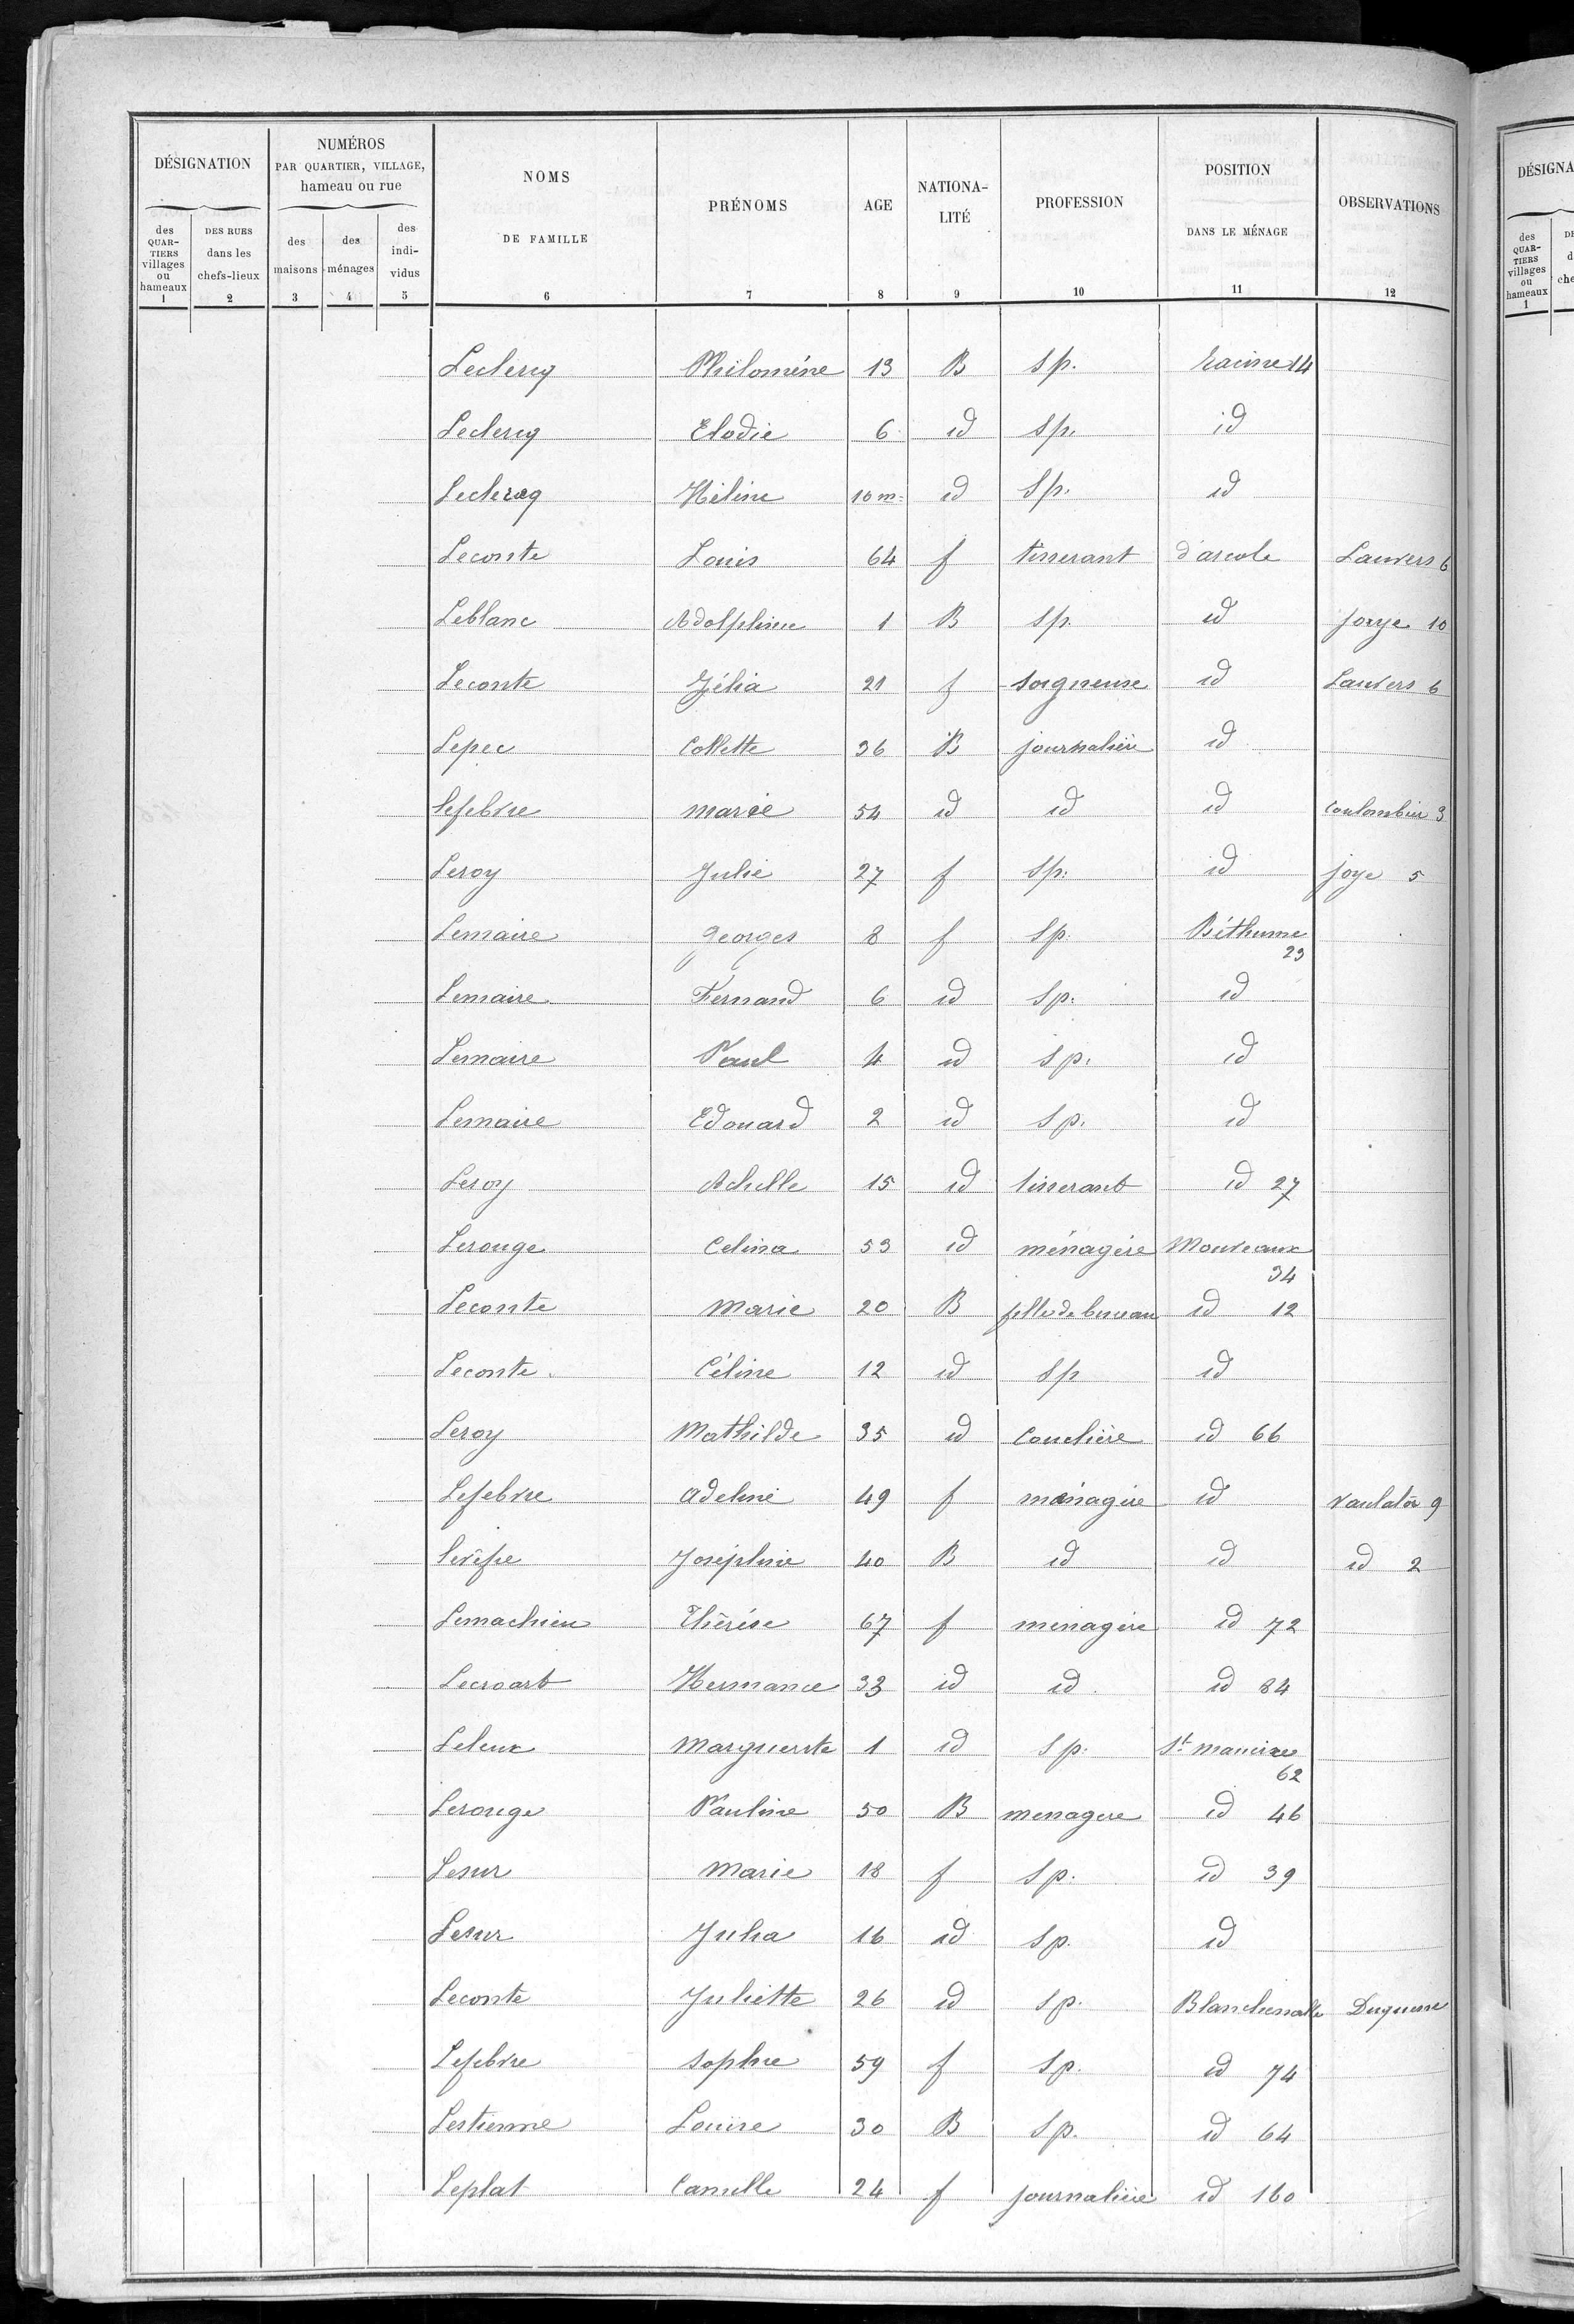 DÉSIGNATION NUMÉROS PAR QUARTIER, VILLAGE, hameau ou rue NOMS DE FAMILLE PRÉNOMS AGE NATIONA-LITÉ PROFESSION POSITION DANS LE MÉNAGE OBSERVATIONS
des QUAR-TIERS villages ou hameaux DES RUES dans les chefs-lieux des maisons des ménages des indi-vidus
1 2 3 4 5 6 7 8 9 10 11 12
Leclercq Philoméne 13 B sp. racine 14
Leclercq Elodie 6 id sp. id
Leclercq Hélène 10 m= id Sp. id
Leconte Louis 64 f tisserant d'arcole Lauwers 6
Leblanc Adolphine 1 B sp. id 10
Leconte Zélia 21 f soigneuse id Lauwers 6
Lepec Collette 36 B journalière id
Lefebvre marie 54 id id id 3
Leroy Julie 27 f Sp. id joye 5
Lemaire georges 8 f Sp. Béthume 23
Lemaire Fernand 6 id Sp. id
Lemaire Paul 4 id sp. id
Lemaire Edouard 2 id sp. id
Leroy Achille 15 id tisserant id 27
Lerouge Celina 53 id ménagère Mouveaux 34
Leconte Marie 20 B id 12
Leconte Céline 12 id sp id
Leroy Mathilde 35 id id 66
Lefebvre adeline 49 f ménagère id 9
Joséphine 40 B id id id 2
Lemachieu Thérèse 67 f ménagère id 72
Lecroart Hermance 33 id id id 84
Leleux Marguerite 1 id sp. St maurice 62
Lerouge Pauline 50 B menagere id 46
Lesur Marie 18 f Sp. id 39
Lesur Julia 16 id sp. id
Leconte Juliette 26 id sp. Blanchemaille Duquesne
Lefebvre sophie 59 f Sp. id 74
Lestienne Louise 30 B Sp. id 64
Leplat Camille 24 f journalière id 160
DÉSIGNA
des QUAR-TIERS villages ou hameaux
1